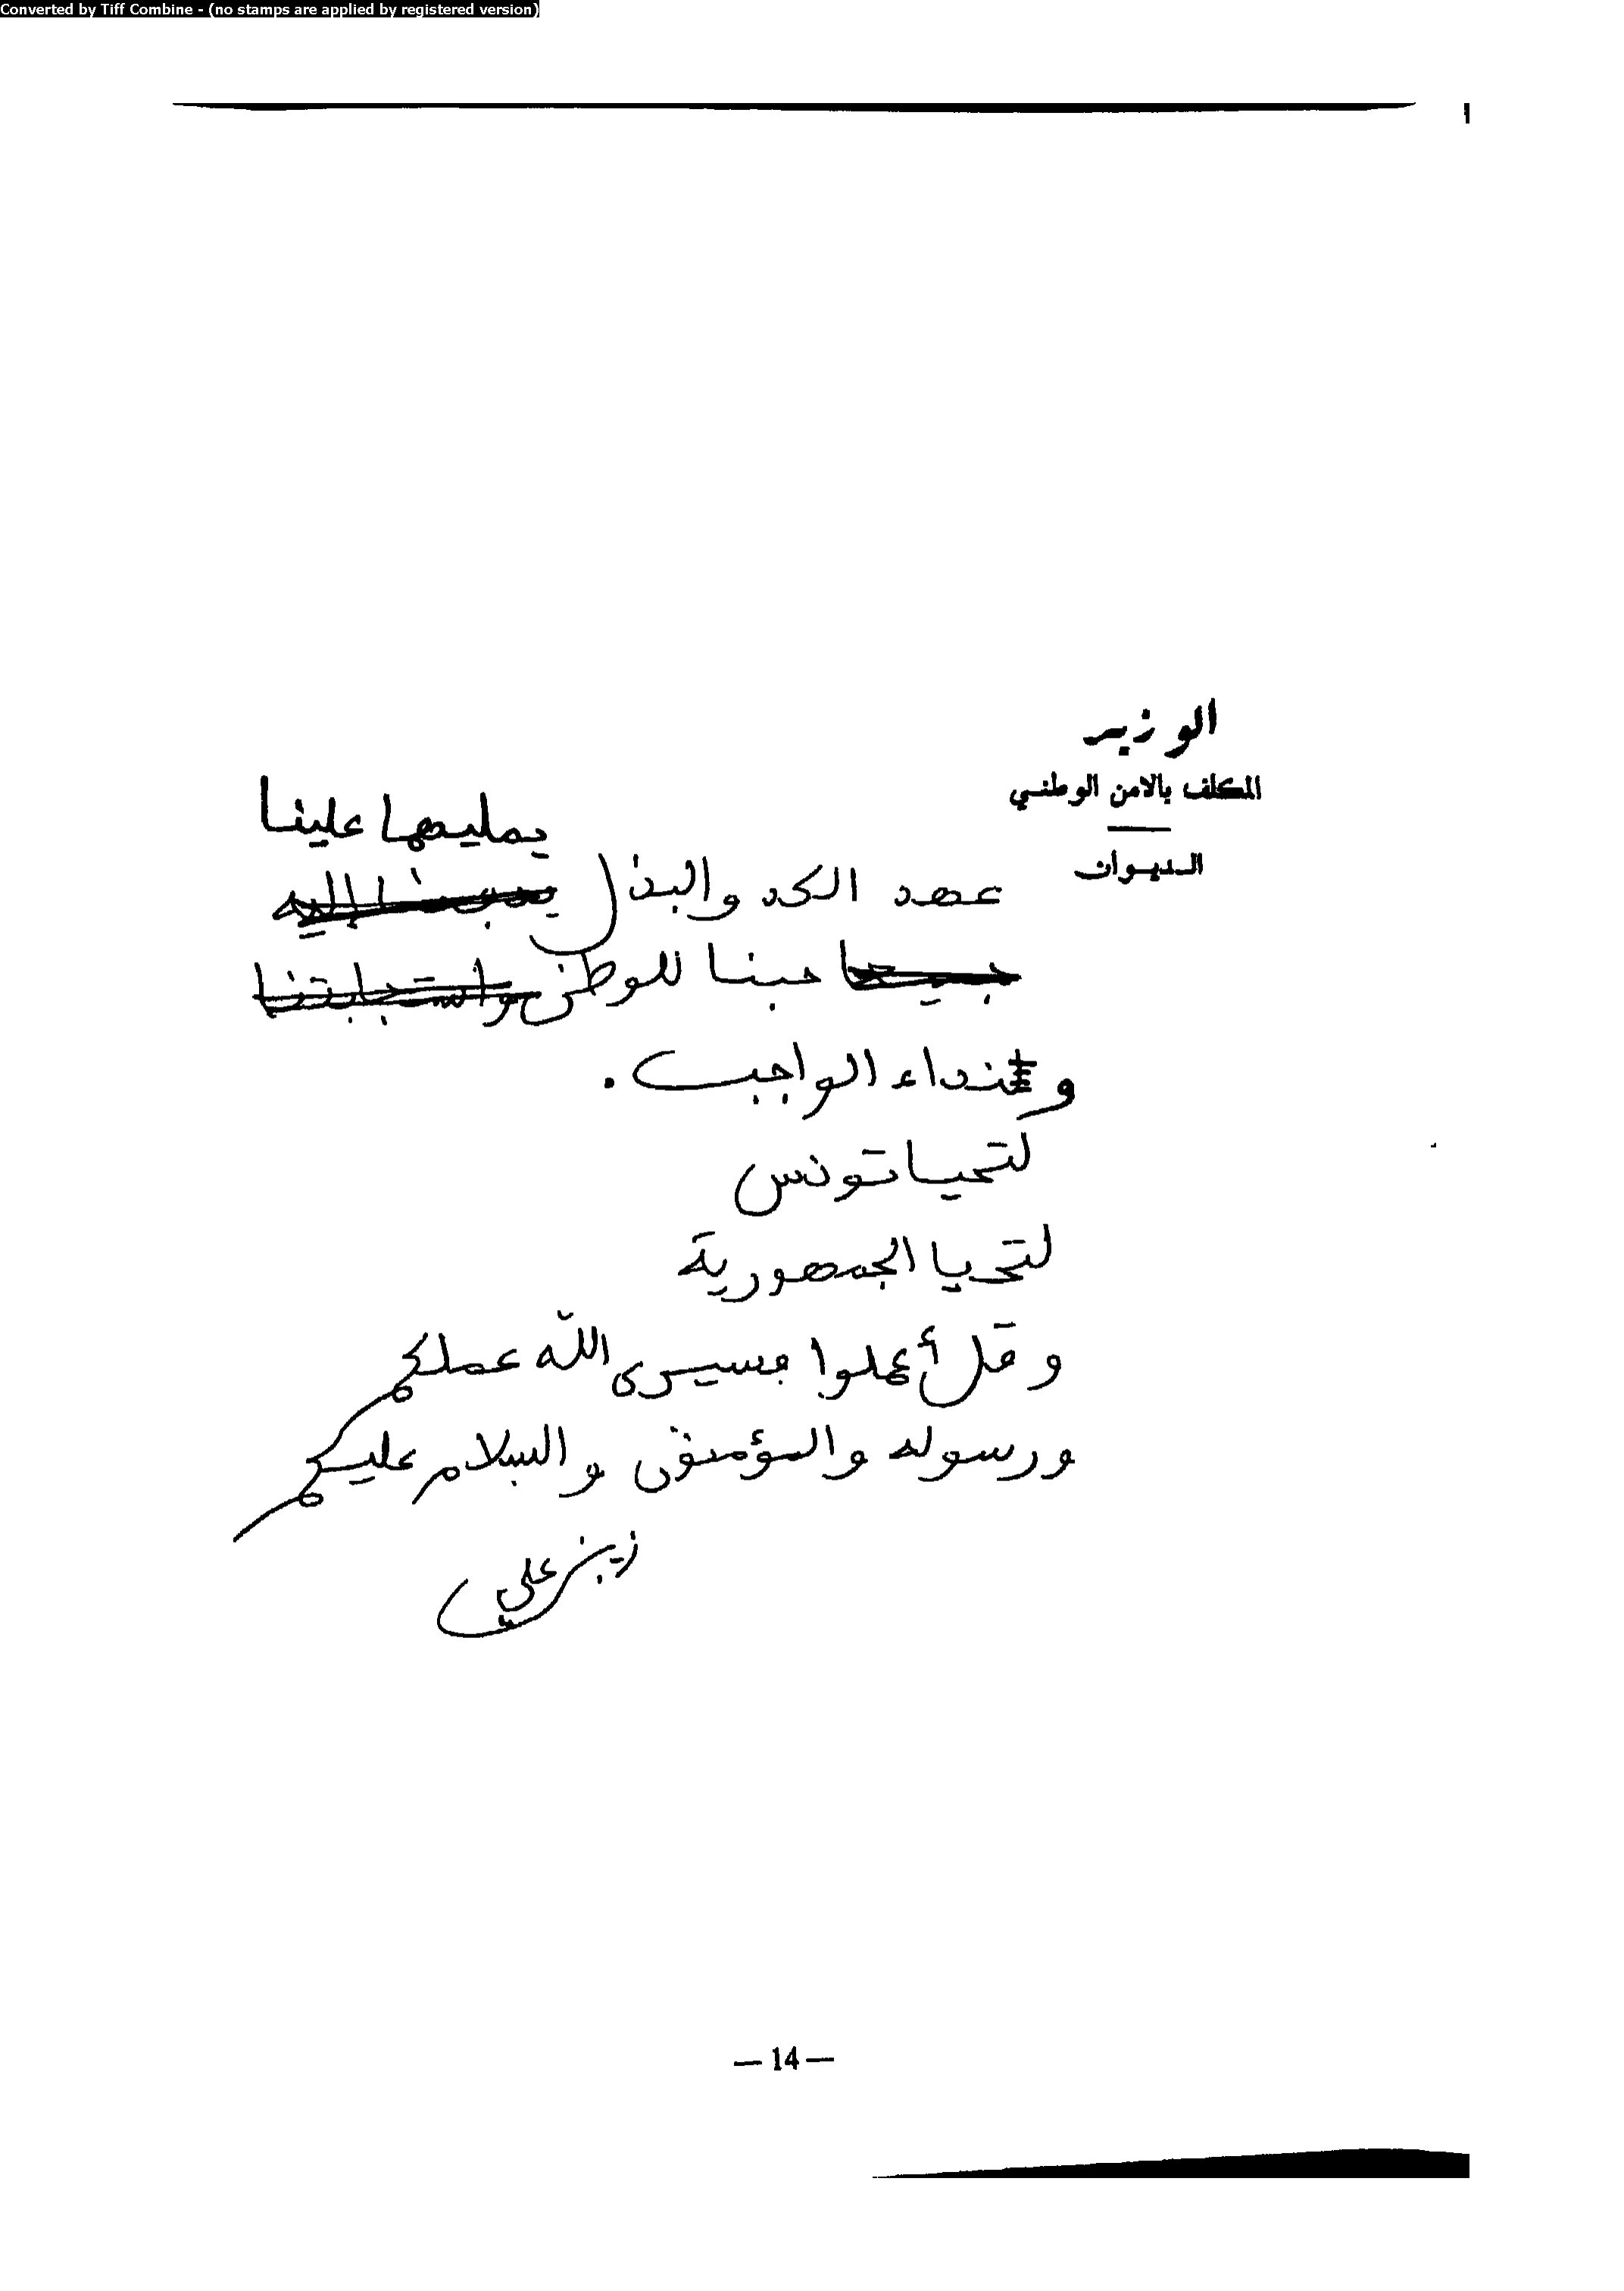 Converted by Tiff Combine - (no stamps are applied by registered version)
الوزير
المكلف بالامن الوطني
الديوان
يمليها علينا
عهد الكد والبذل
حبنا للوطن واستجابتنا
ونداء الواجب .
لتحيا تونس
لتحيا الجمهورية
وقل أعملوا فسيرى الله عملكم
ورسوله والمؤمنون والسلام عليكم
زين علي
— 14 —